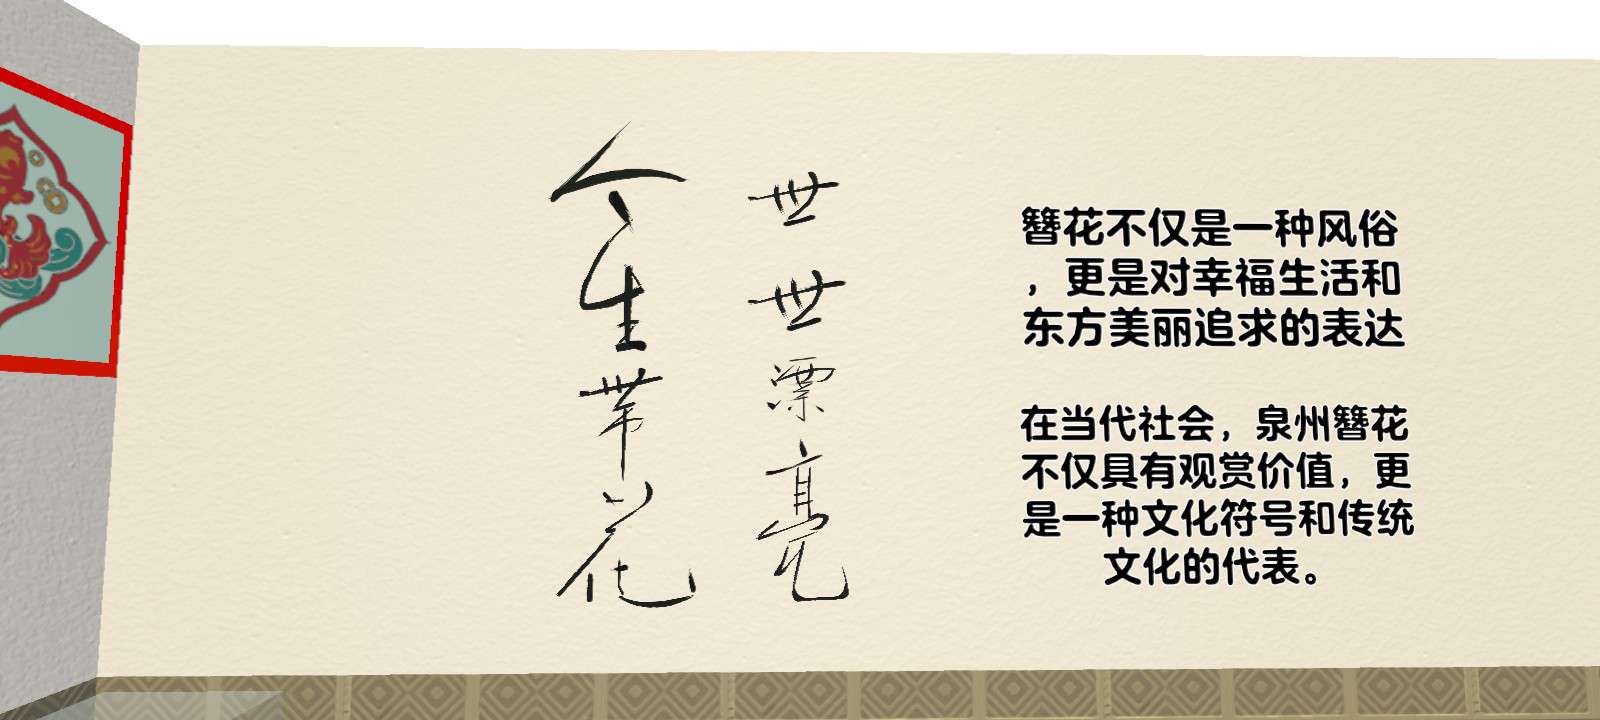 今生带花
世世漂亮
簪花不仅是一种风俗
，更是对幸福生活和
东方美丽追求的表达
在当代社会，泉州簪花
不仅具有观赏价值，更
是一种文化符号和传统
文化的代表。